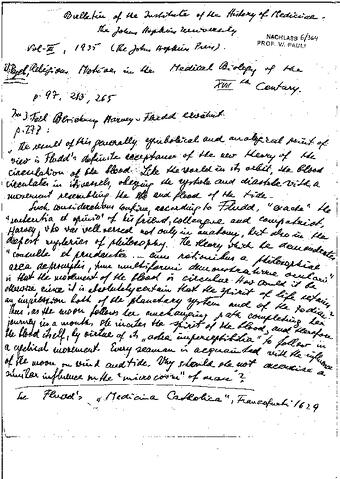 Bulletin of the Institute of the History of Medicine.
The Johns Hopkins University
NACHLASS 6/364
PROF. W. PAULI
Vol. III, 1935 (The John Hopkins Press).
Religious Motives in the Medical Biology of the
XVII th Century.
p. 97, 213, 265
Harvey - Fludd
p. 277:
"the result of this generally symbolical and analogical point of
view is Fludd's definite acceptance of the new theory of the
circulation of the blood. Like the world in its orbit, the blood
circulates in itself, obeying the systole and diastole with a
movement resembling the ebb and flood of the tide.
Such considerations inspire, according to Fludd, the
of his friend, colleague and compatriot
Harvey, who was well versed not only in anatomy, but also in the
deepest mysteries of philosophy. The theory
"consulte et prudenter
is that the movement of the blood is circular. How could it be
otherwise since it is absolutely certain that the spirit of life retains
an impression both of the planetary system and of the zodiac?
Thus, as the moon follows her unchanging path completing her
journey in a month, she incites the spirit of the blood, and therefore
the blood itself, by virtue of its to follow in
a cyclical movement. Every seaman is acquainted with the influence
of the moon on wind and tide. Why should she not exercise a
similar influence on the "microcosm" of man?
In Fludd's "Medicina Catholica", Francofurti 1629